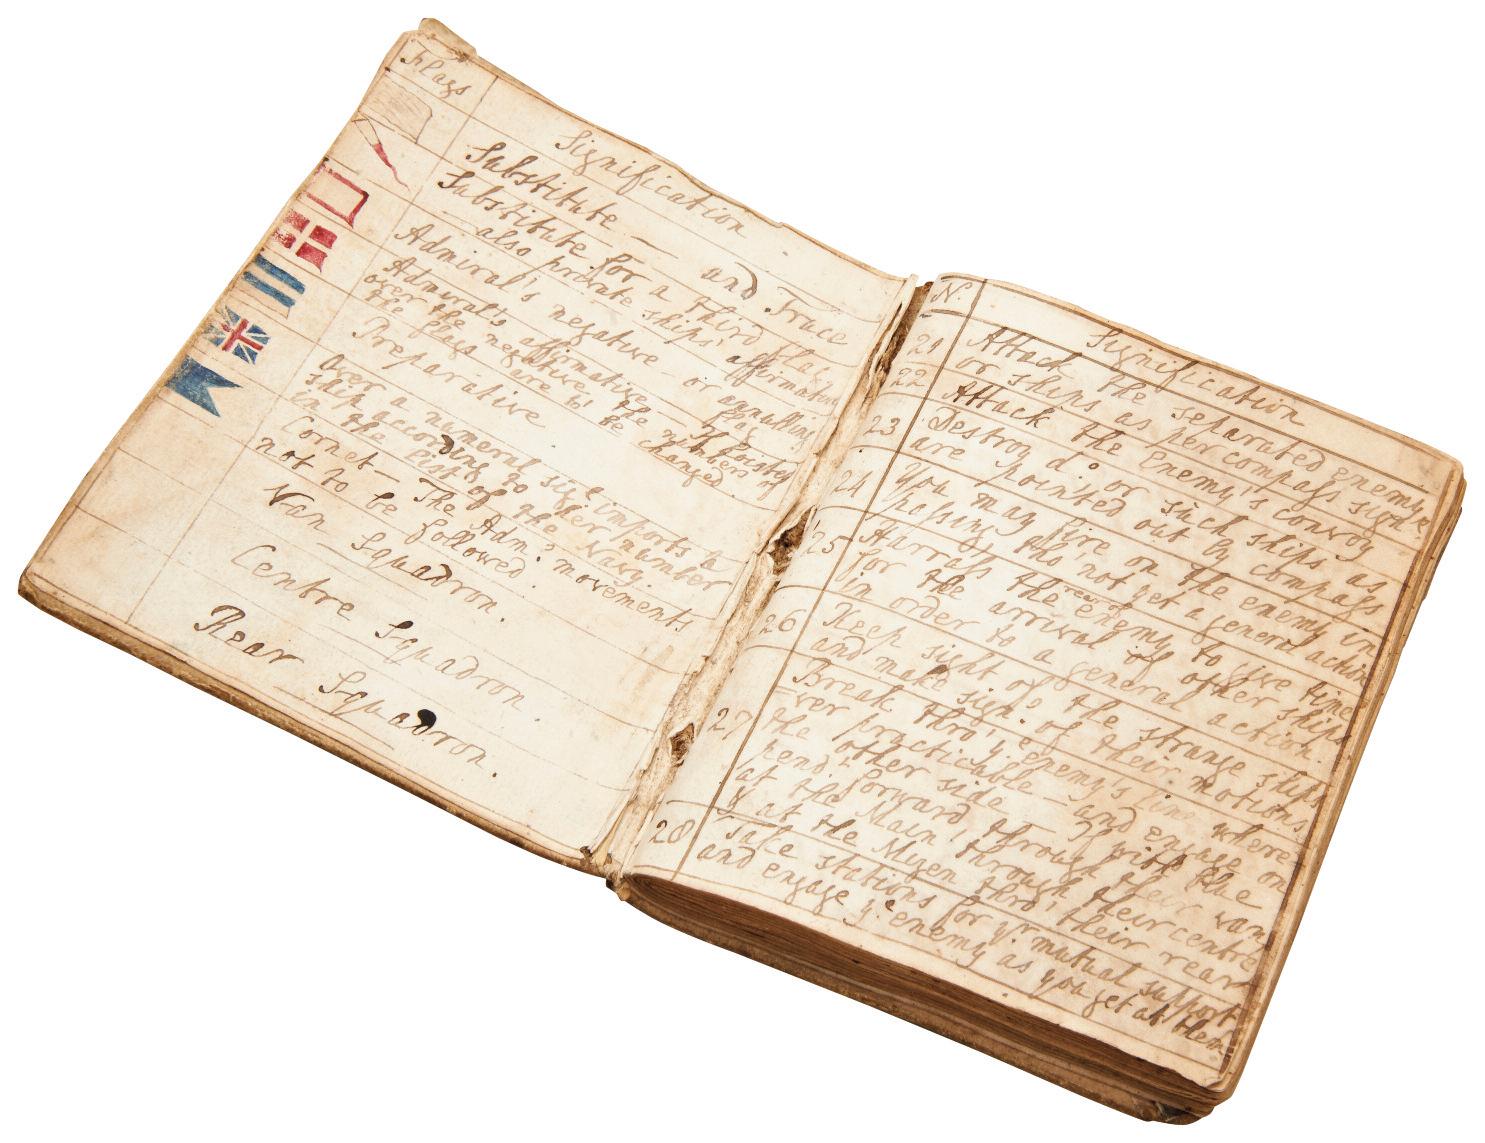 Flags
Signification
Substitute — and Truce
Substitute for a third flag
also private ships' affirmative
Admiral's negative — or annulling
Admiral's affirmative — If hoisted
over the negative the numbers of
the flags are to be changed.
Preparative
Over a numeral sigl imports a
ship according to her number
in the list of the Navy.
Cornet — The Adm.s movements
not to be followed.
Van Squadron.
Centre Squadron.
Rear Squadron.
N.
Signification
21 Attack the separated enemy
or ships as per compass sigl
22 Attack the Enemy's convoy
23 Destroy do or such ships as
are pointed out by compass
24 You may fire on the enemy in
passing tho' not get a general action
25 Harrass the rear of enemy to give time
for the arrival of other ships
in order to a general action.
26 Keep sight of the strange ships
and make sign. of their motions
27 Break thro' ye enemy's line where
=ver practicable — and engage on
the other side — If with blue
pend.t forward through their van
at the Main, through their centre
& at the Mizen thro' their rear
28 Take stations for yr mutual support
and engage ye enemy as you get at them